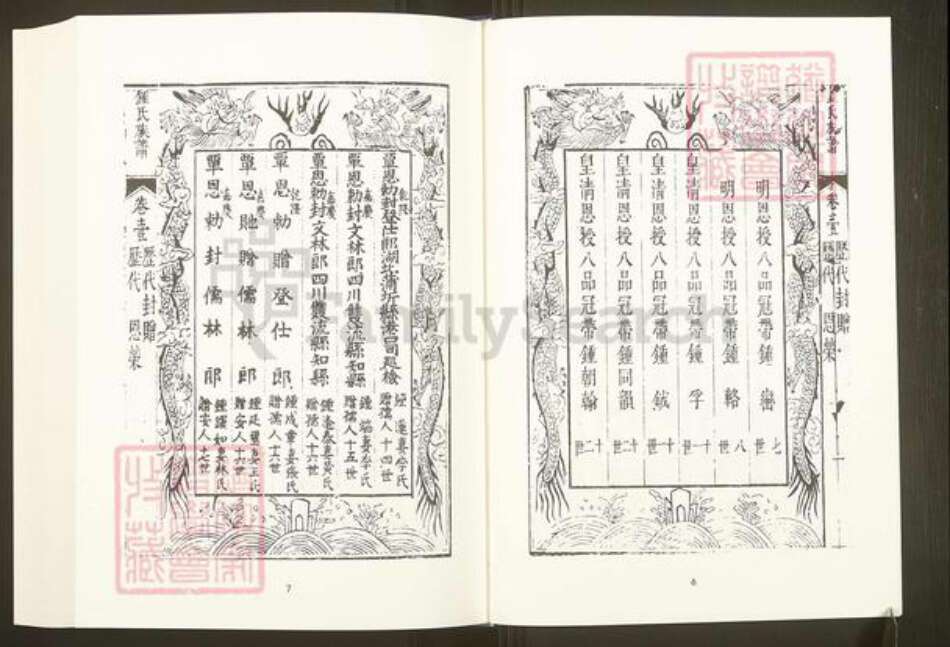 鍾氏族譜
卷壹
歷代封贈
歷代恩榮
明恩授八品冠帶鍾巒 七世
明恩授八品冠帶鍾輅 八世
皇清恩授八品冠帶鍾孚 十一世
皇清恩授八品冠帶鍾鉞 十一世
皇清恩授八品冠帶鍾同韻 十二世
皇清恩授八品冠帶鍾朝翰 十二世
6
乾隆
覃恩勅封登仕郎湖北蒲圻縣港口司巡檢
李氏
贈孺人十四世
嘉慶
覃恩勅封文林郎四川雙流縣知縣
李氏
贈孺人十五世
嘉慶
覃恩勅封文林郎四川雙流縣知縣
贈孺人十六世
覃恩勅贈登仕郎
鍾成章妻張氏
贈孺人十六世
嘉慶
覃恩貤贈儒林郎
王氏
贈安人十六世
嘉慶
覃恩勅封儒林郎
林氏
贈安人十七世
鍾氏族譜
卷壹
歷代封贈
歷代恩榮
7
FamilySearch